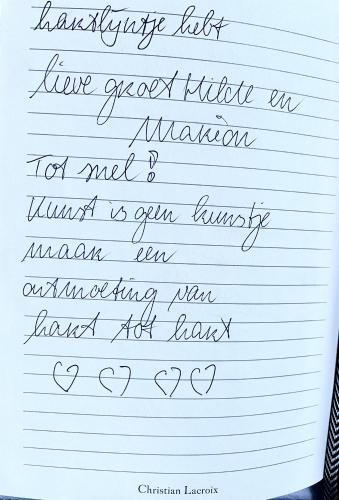 hartlijntje hebt
lieve groet Hilde en
Marion
Tot snel!
Kunst is geen kunstje
maar een
ontmoeting van
hart tot hart
Christian Lacroix